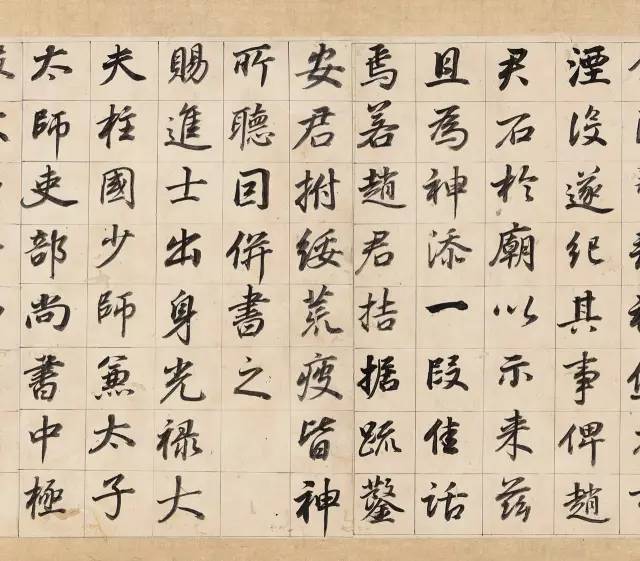 湮没遂纪其事俾趙
君石於廟以示来兹
且為神添一段佳話
焉若趙君拮据疏鑿
安君拊綏荒瘦皆神
所聽囙併書之
賜進士出身光禄大
夫柱國少師兼太子
太師吏部尚書中極